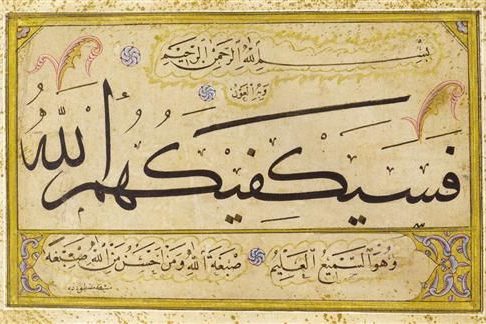 بسم الله الرحمن الرحيم
وبه العون
فسيكفيكهم الله
وهو السميع العليم صبغة الله ومن احسن من الله صبغة